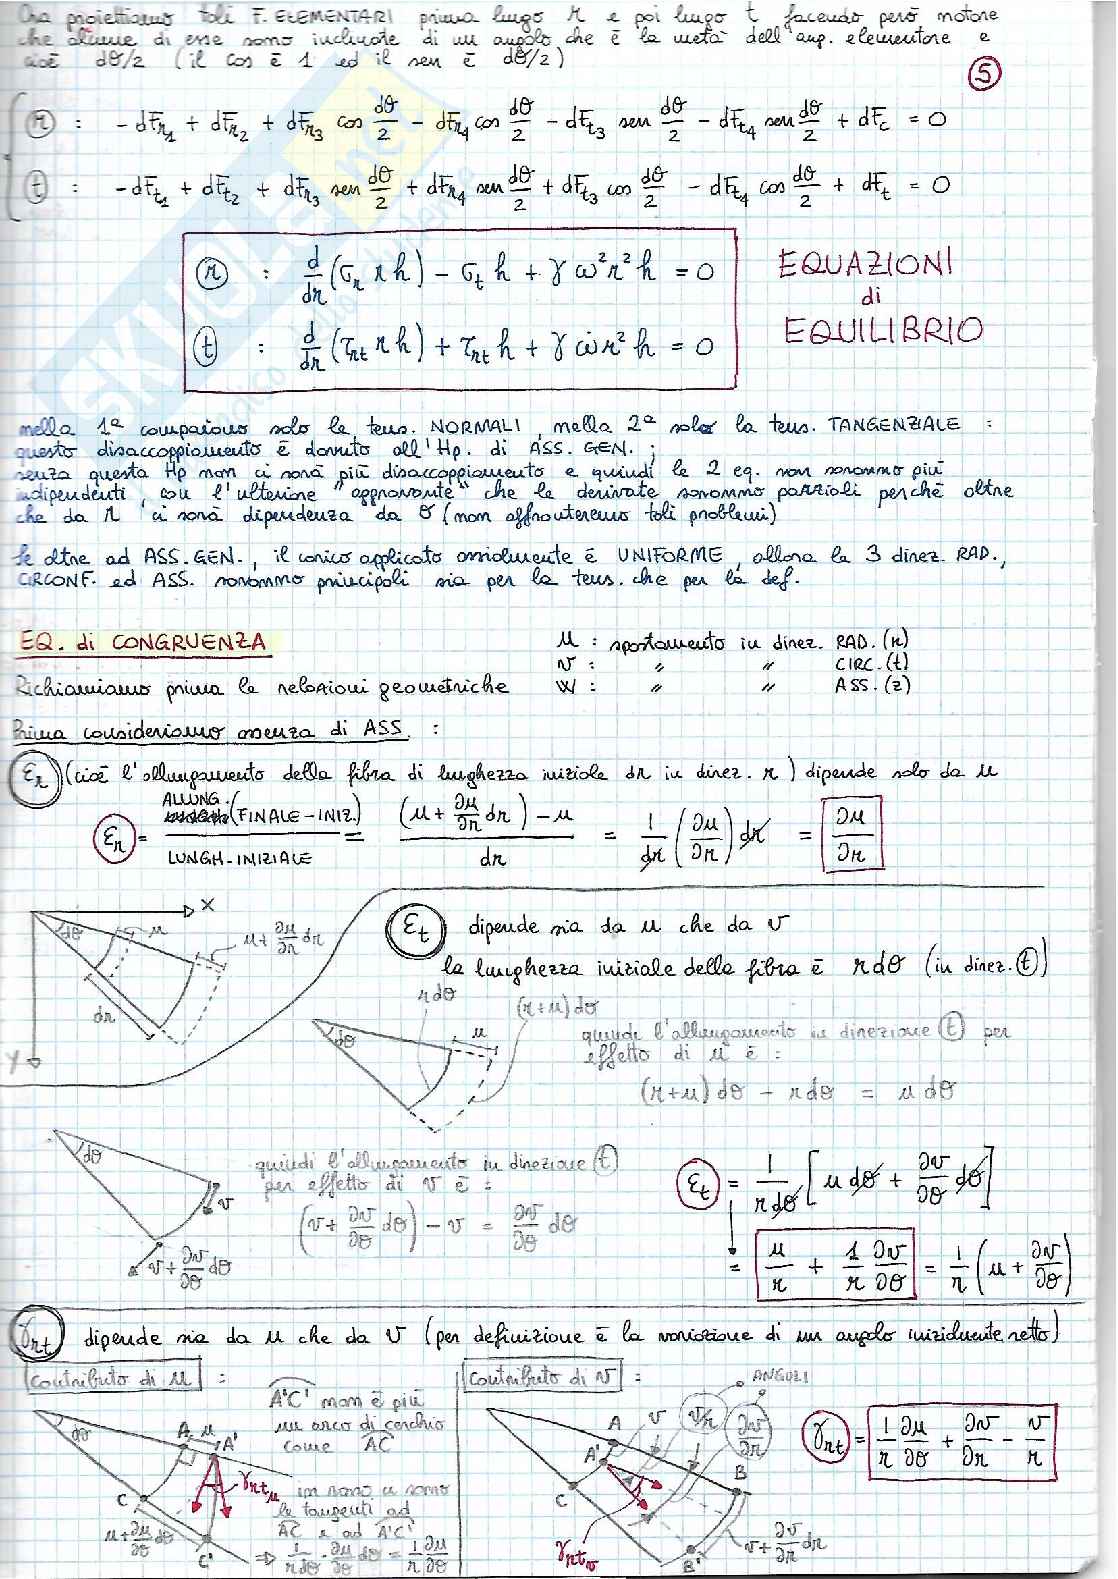 Ora proiettiamo tali F. ELEMENTARI prima lungo r e poi lungo t facendo però notare
che alcune di esse sono inclinate di un angolo che è la metà dell'ang. elementare e
cioè dθ/2 (il cos è 1 ed il sen è dθ/2)
5
r : - dFr1 + dFr2 + dFr3 cos dθ/2 - dFr4 cos dθ/2 - dFt3 sen dθ/2 - dFt4 sen dθ/2 + dFc = 0
t : - dFt1 + dFt2 + dFr3 sen dθ/2 + dFr4 sen dθ/2 + dFt3 cos dθ/2 - dFt4 cos dθ/2 + dFt = 0
r : d/dr (σr r h) - σt h + γ ω² r² h = 0
t : d/dr (τrt r h) + τrt h + γ ω̇ r² h = 0
EQUAZIONI
di
EQUILIBRIO
nella 1ª compaiono solo le tens. NORMALI, nella 2ª solo la tens. TANGENZIALE :
questo disaccoppiamento è dovuto all'Hp. di ASS. GEN. ;
senza questa Hp non ci sarà più disaccoppiamento e quindi le 2 eq. non saranno più
indipendenti, con l'ulteriore "aggravante" che le derivate saranno parziali perché oltre
che da r ci sarà dipendenza da θ (non affronteremo tali problemi)
Se oltre ad ASS. GEN., il carico applicato assialmente è UNIFORME, allora la 3 direz. RAD.,
CIRCONF. ed ASS. saranno principali sia per la tens. che per la def.
EQ. di CONGRUENZA
u : spostamento in direz. RAD. (r)
v : " " CIRC. (t)
w : " " ASS. (z)
Richiamiamo prima le relazioni geometriche
Prima consideriamo assenza di ASS. :
εr (cioè l'allungamento della fibra di lunghezza iniziale dr in direz. r) dipende solo da u
εr = ALLUNG. (FINALE-INIZ.) / LUNGH. INIZIALE = ((u + ∂u/∂r dr) - u) / dr = 1/dr (∂u/∂r) dr = ∂u/∂r
X
dθ
u
u + ∂u/∂r dr
dr
Y
εt dipende sia da u che da v
la lunghezza iniziale della fibra è r dθ (in direz. t)
r dθ
(r+u) dθ
dθ
u
quindi l'allungamento in direzione t per
effetto di u è :
(r+u) dθ - r dθ = u dθ
dθ
v
v + ∂v/∂θ dθ
quindi l'allungamento in direzione t
per effetto di v è :
(v + ∂v/∂θ dθ) - v = ∂v/∂θ dθ
εt = 1/(r dθ) [u dθ + ∂v/∂θ dθ]
= u/r + 1/r ∂v/∂θ = 1/r (u + ∂v/∂θ)
γrt dipende sia da u che da v (per definizione è la variazione di un angolo inizialmente retto)
contributo di u :
dθ
A u A'
γrtu
C
u + ∂u/∂θ dθ
C'
A'C' non è più
un arco di cerchio
come AC
in rosso ci sono
le tangenti ad
AC e ad A'C'
⇒ 1/(r dθ) · ∂u/∂θ dθ = 1/r ∂u/∂θ
contributo di v :
ANGOLI
A
v
v/r
∂v/∂r
A'
B
C
γrtv
B'
v + ∂v/∂r dr
γrt = 1/r ∂u/∂θ + ∂v/∂r - v/r